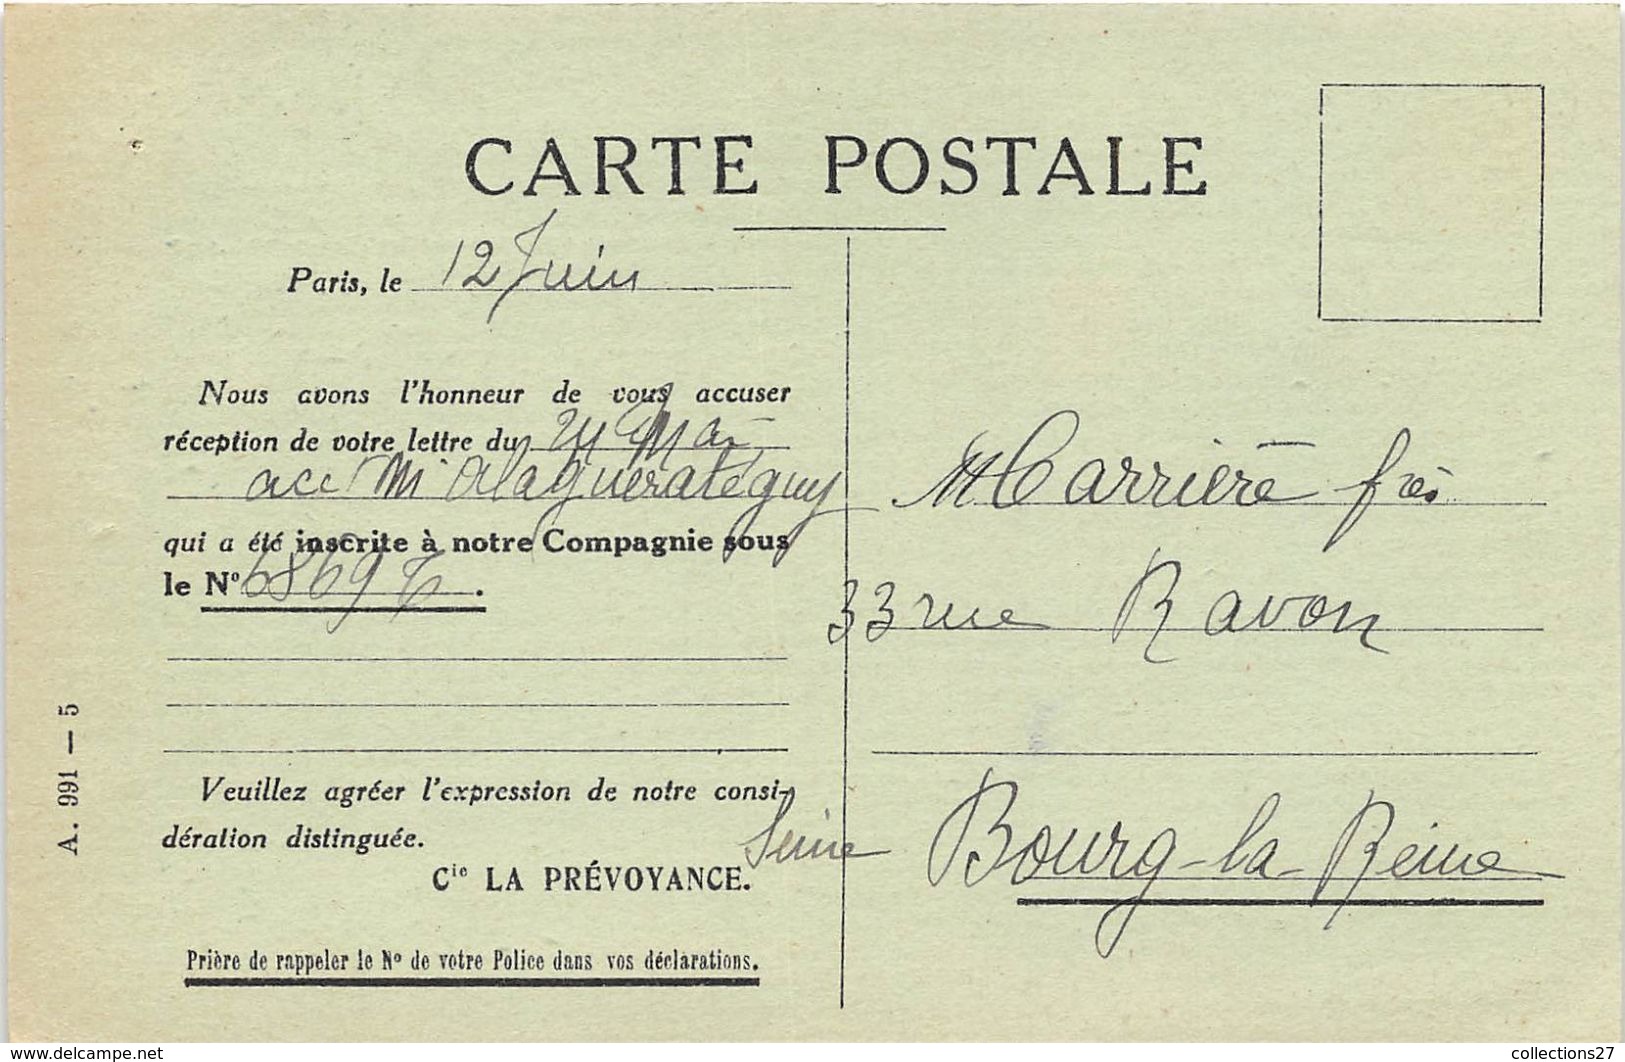 CARTE POSTALE
Paris, le 12 Juin
Nous avons l'honneur de vous accuser
réception de votre lettre du Mai
acc M
qui a été inscrite à notre Compagnie sous
le Nº 68697
Veuillez agréer l'expression de notre consi-
dération distinguée.
Cie LA PRÉVOYANCE.
Prière de rappeler le Nº de votre Police dans vos déclarations.
A. 991 — 5
M Carrière
33 rue Ravon
Bourg-la-Reine
Seine
www.delcampe.net
collections27